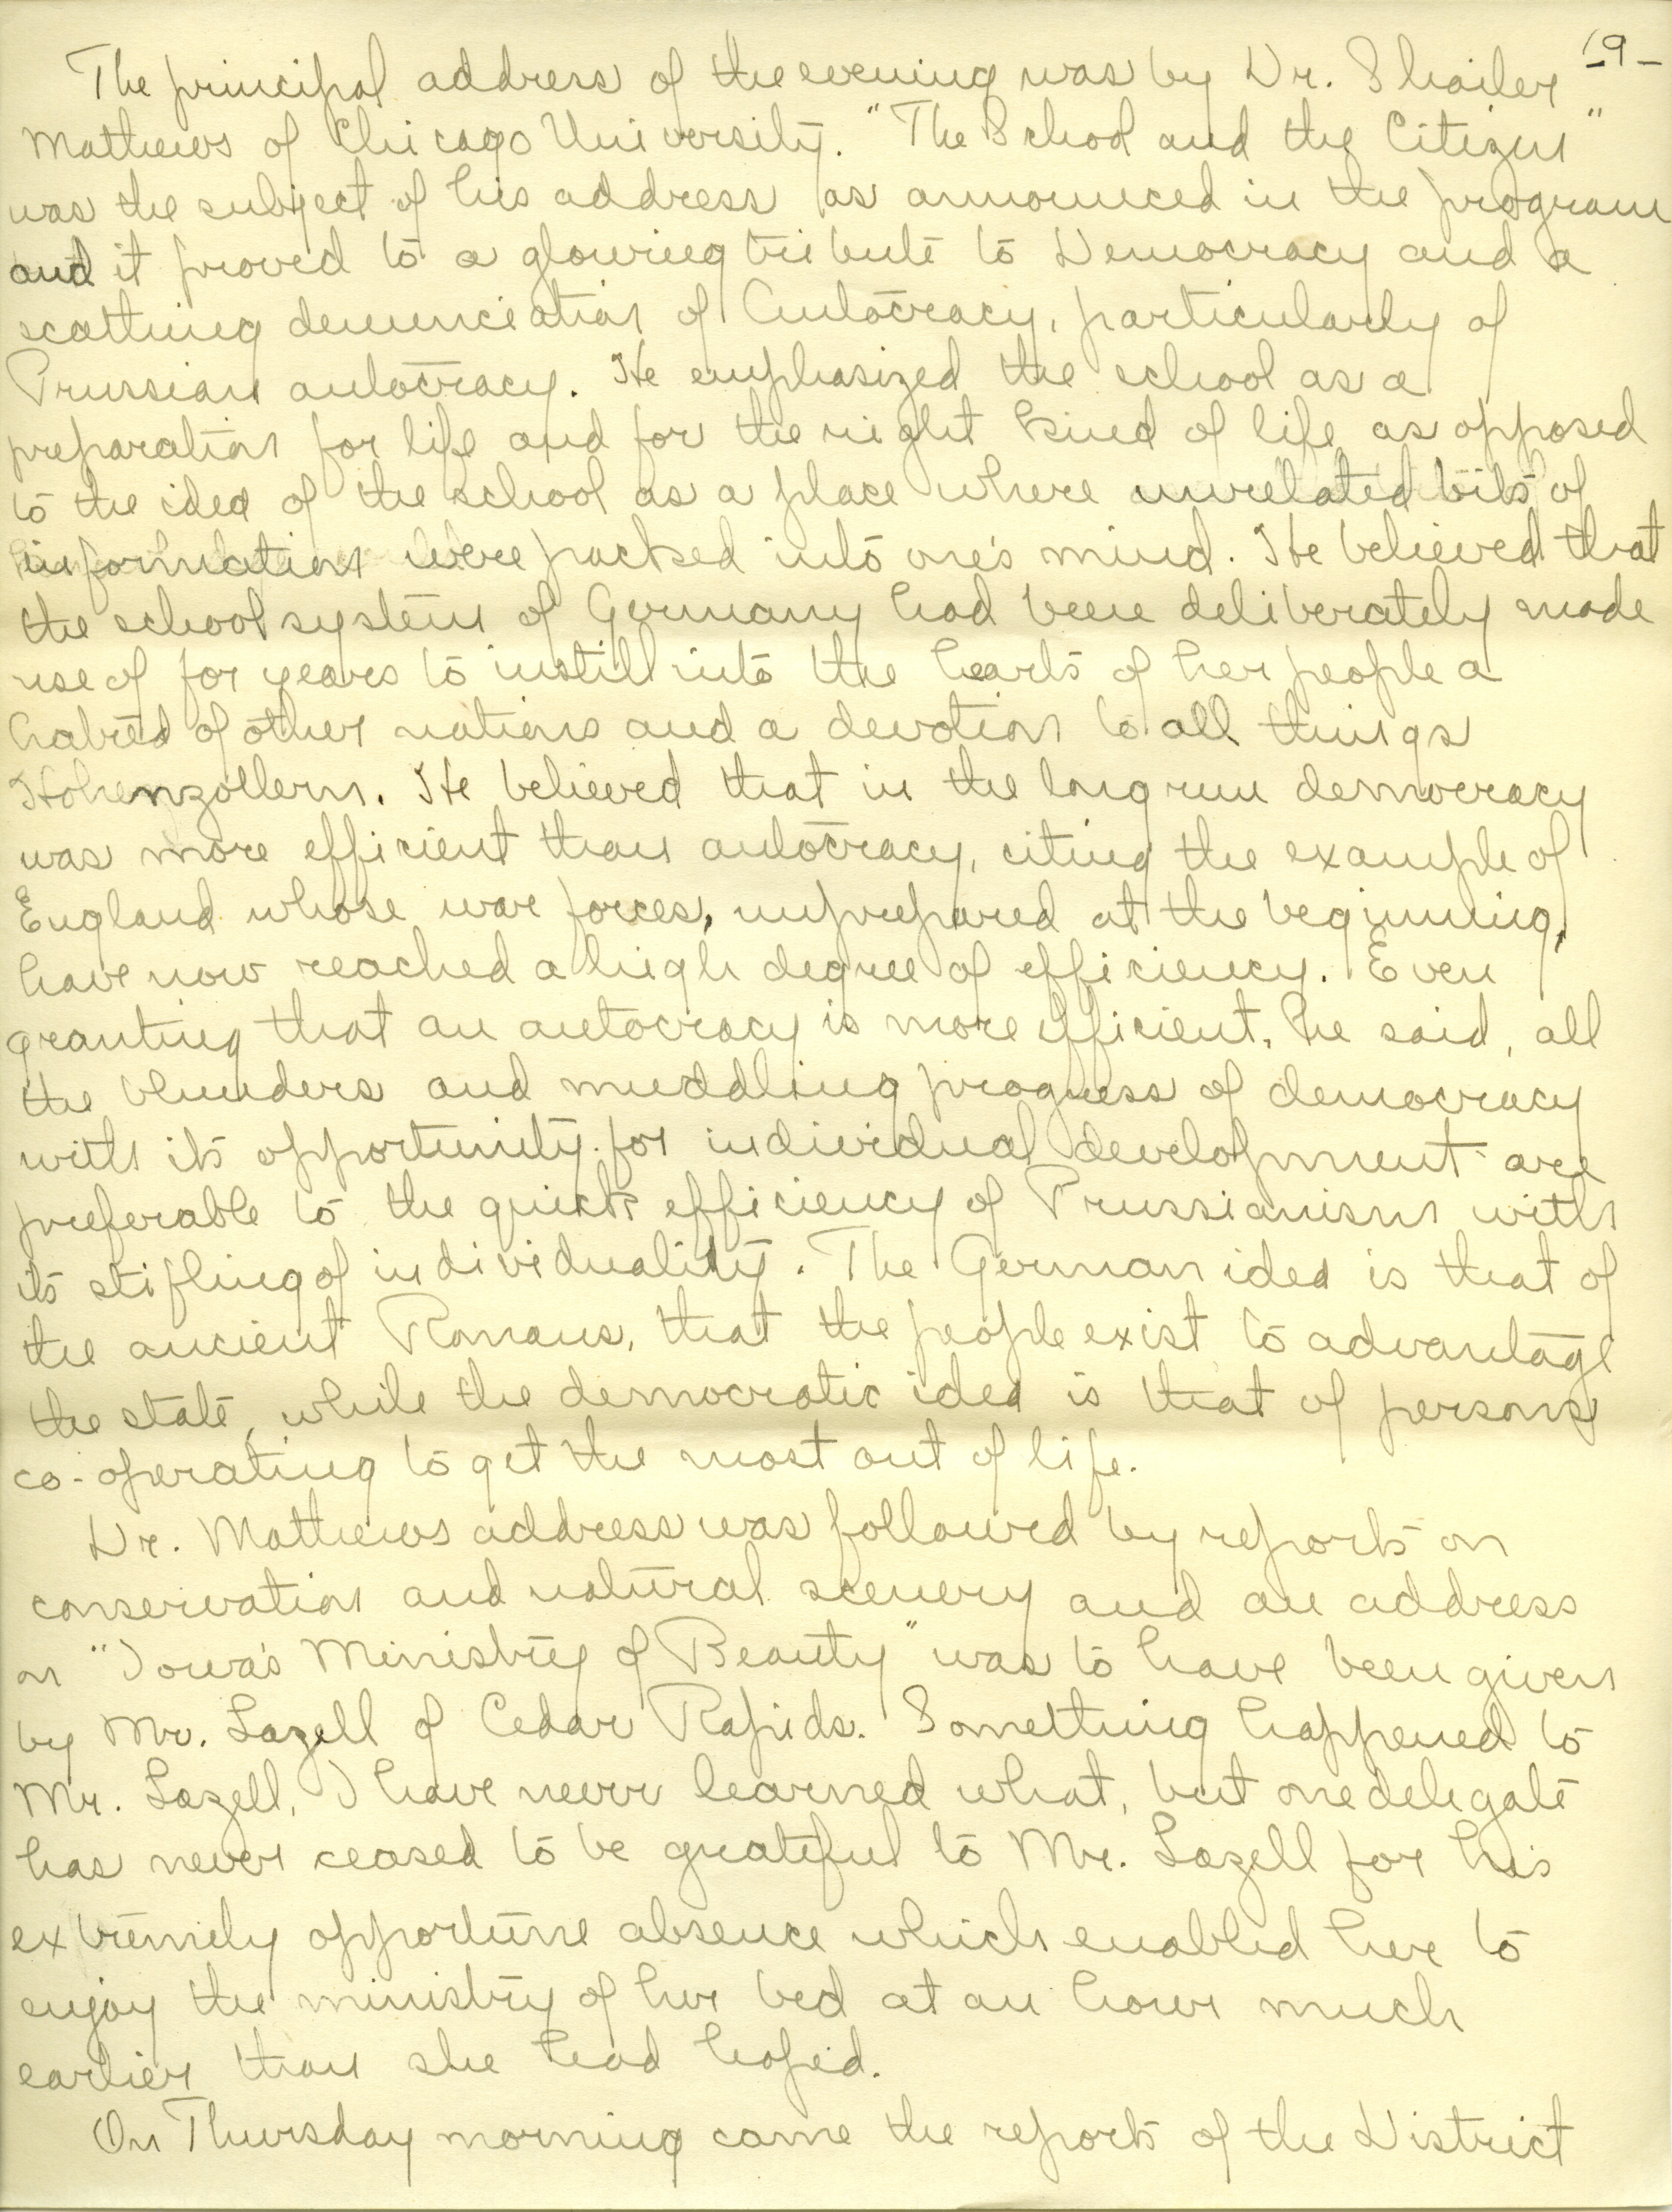 -9-
The principal address of the evening was by Dr. Shailer
Mathews of Chicago University. "The School and the Citizen"
was the subject of his address as announced in the program
and it proved to a glowing tribute to Democracy and a
scathing denunciation of Autocracy, particularly of
Prussian autocracy. He emphasized the school as a
preparation for life and for the right kind of life as opposed
to the idea of the school as a place where unrelated bits of
information were packed into one's mind. He believed that
the school system of Germany had been deliberately made
use of for years to instill into the hearts of her people a
hatred of other nations and a devotion to all things
Hohenzollern. He believed that in the long run democracy
was more efficient than autocracy, citing the example of
England whose war forces, unprepared at the beginning,
have now reached a high degree of efficiency. Even
granting that an autocracy is more efficient, he said, all
the blunders and muddling progress of democracy
with its opportunity for individual development are
preferable to the quick efficiency of Prussianism with
its stifling of individuality. The German idea is that of
the ancient Romans, that the people exist to advantage
the state, while the democratic idea is that of persons
co-operating to get the most out of life.
Dr. Mathews address was followed by reports on
conservation and natural scenery and an address
on "Iowa's Ministry of Beauty" was to have been given
by Mr. Lazell of Cedar Rapids. Something happened to
Mr. Lazell, I have never learned what, but one delegate
has never ceased to be grateful to Mr. Lazell for his
extremely opportune absence which enabled her to
enjoy the ministry of her bed at an hour much
earlier than she had hoped.
On Thursday morning came the reports of the District